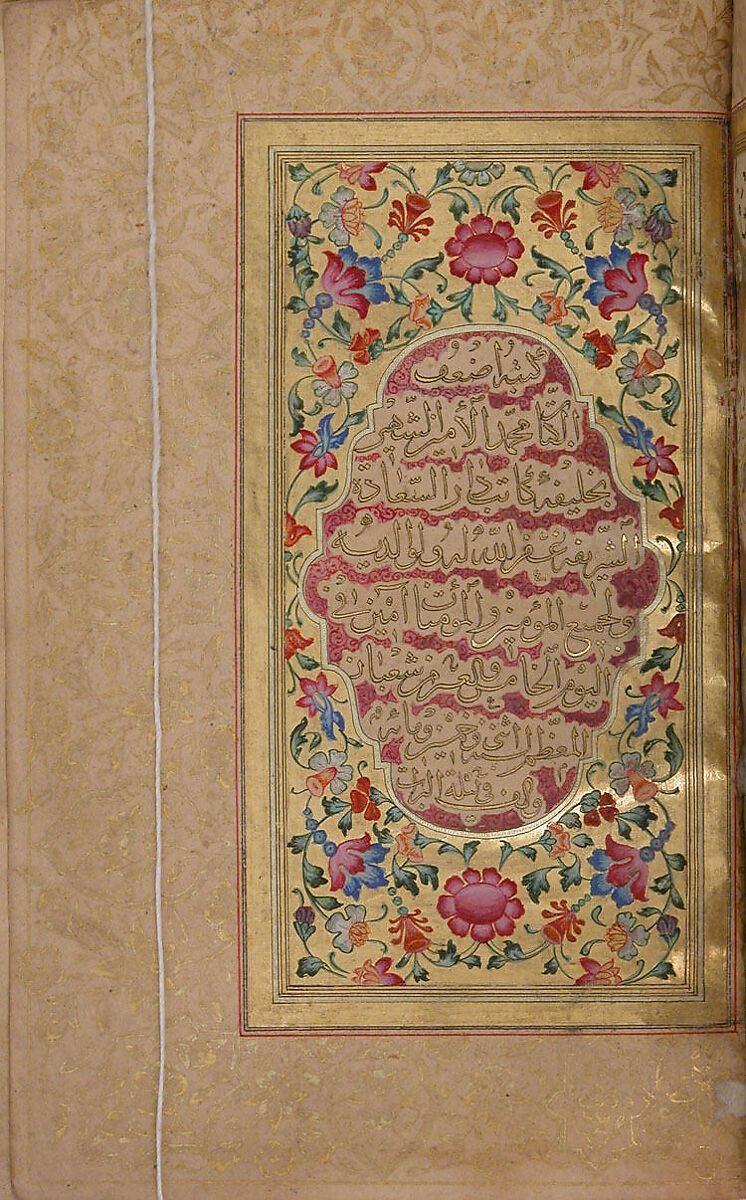 كتبه اضعف
الكتاب محمد الأمين الشهير
بخليفه كاتب دار السعادة
الشريفه غفر الله له ولوالديه
ولجميع المؤمنين والمؤمنات آمين في
اليوم الخامس والعشرين شعبان
المعظم لسنة اثنى وخمسين ومائه
والف